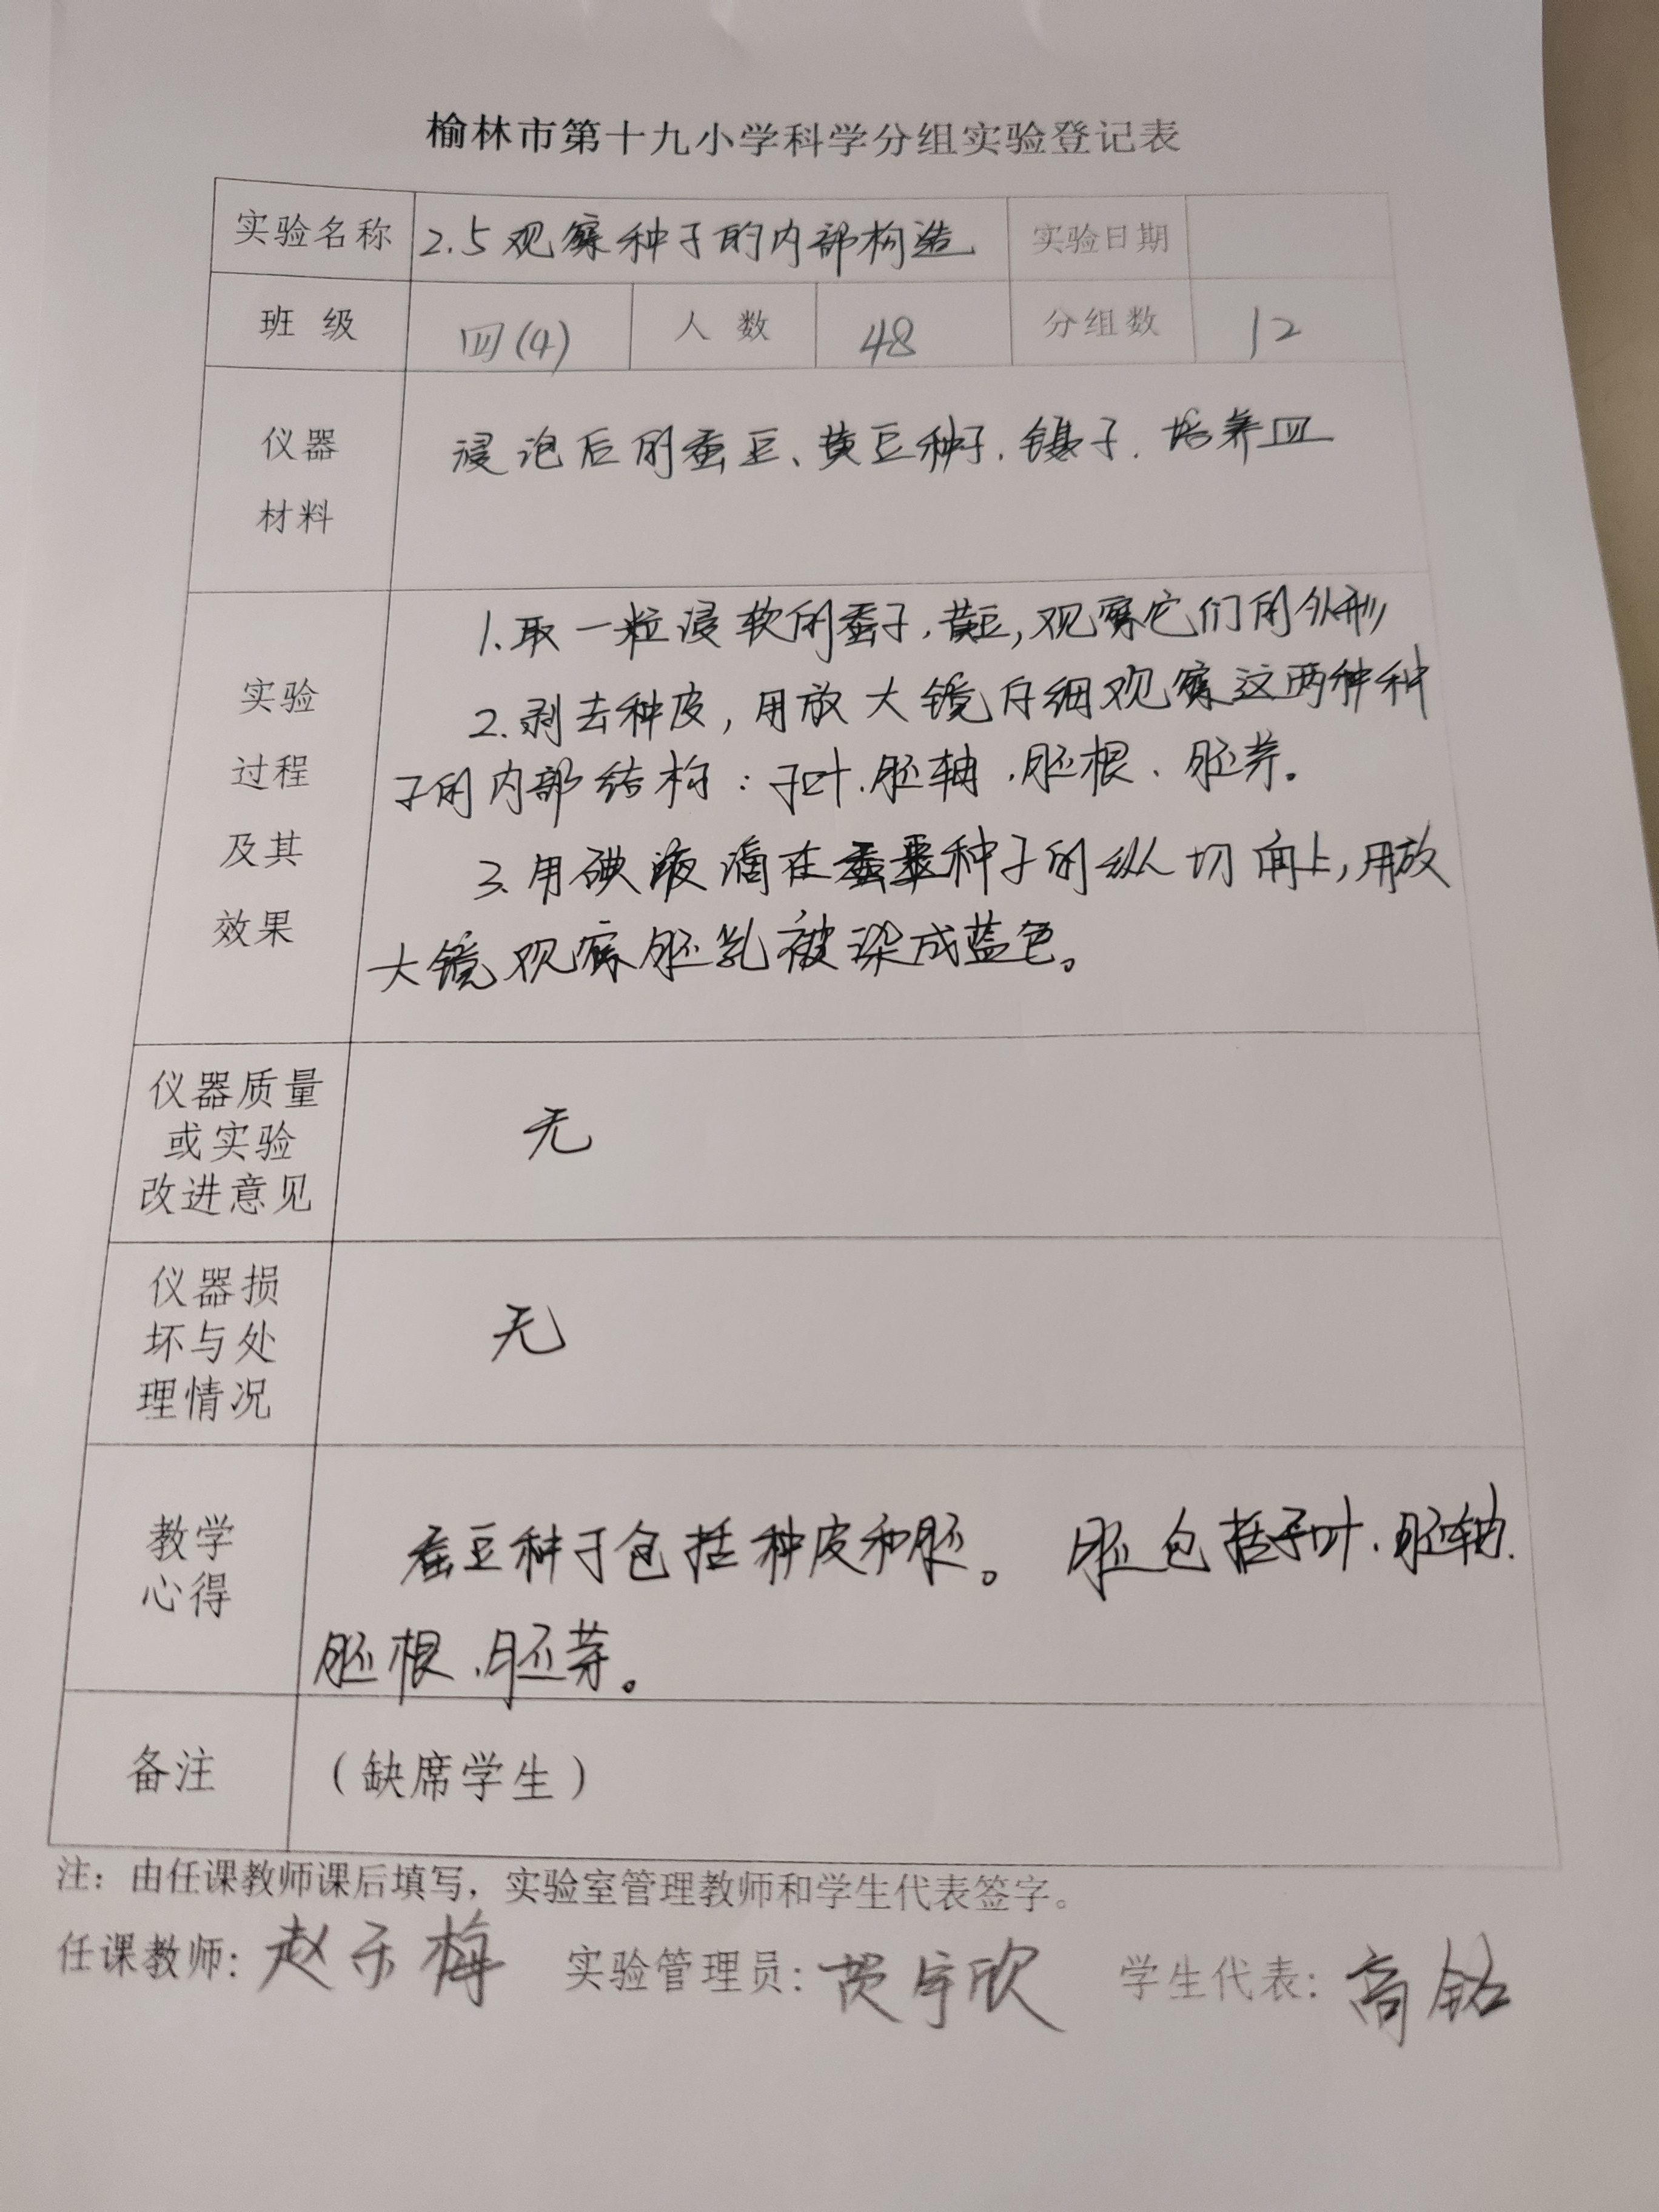 榆林市第十九小学科学分组实验登记表
实验名称 2.5观察种子的内部构造 实验日期
班 级 四(4) 人 数 48 分组数 12
仪器 浸泡后的蚕豆、黄豆种子.镊子.培养皿
材料
1.取一粒浸软的蚕子,黄豆,观察它们的外形
实验 2.剥去种皮,用放大镜仔细观察这两种种
过程 子的内部结构:子叶.胚轴.胚根、胚芽。
及其 3.用碘液滴在 种子的纵切面上,用放
效果 大镜观察胚乳被染成蓝色。
仪器质量
或实验 无
改进意见
仪器损
坏与处 无
理情况
教学 蚕豆种子包括种皮和胚。 胚包括子叶.胚轴.
心得 胚根.胚芽。
备注 (缺席学生)
注:由任课教师课后填写,实验室管理教师和学生代表签字。
任课教师:赵乐梅 实验管理员:贺宇欣 学生代表:高铭